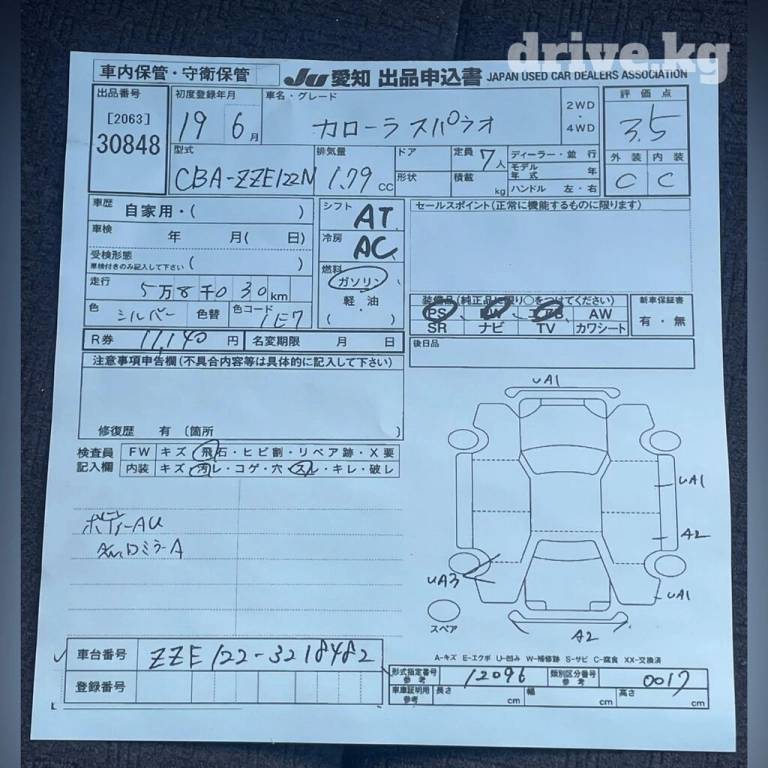 drive.kg
車内保管・守衛保管
JU 愛知 出品申込書 JAPAN USED CAR DEALERS ASSOCIATION
出品番号
[2063]
30848
初度登録年月
19 6月
車名・グレード
カローラスパシオ
2WD
・
4WD
評価点
3.5
外装 内装
C C
型式
CBA-ZZE122N
排気量
1.79 CC
ドア
形状
定員 7人
積載 kg
ディーラー・並行
モデル年式 年
ハンドル 左・右
車歴 自家用・( )
車検 年 月( 日)
受検形態
車検付きのみ記入して下さい ( )
走行 5万8千030km
色 シルバー 色替 色コード 1E7
シフト AT
冷房 AC
燃料
ガソリン
軽・油
( )
セールスポイント(正常に機能するものに限ります)
装備品(純正品に限り○をつけてください)
PS PW エアB AW
SR ナビ TV カワシート
新車保証書
有・無
R券 11,140円 名変期限 月 日
後日品
注意事項申告欄(不具合内容等は具体的に記入して下さい)
修復歴 有 (箇所 )
検査員
記入欄
FW キズ・飛石・ヒビ割・リペア跡・X要
内装 キズ・汚レ・コゲ・穴・スレ・キレ・破レ
ボデーAU
ミラーA
UA1
UA1
A2
UA3
UA1
A2
スペア
A-キズ E-エクボ U-凹み W-補修跡 S-サビ C-腐食 XX-交換済
車台番号 ZZE122-3218482
登録番号
形式指定番号 参考 12096
類別区分番号 参考 0017
車庫証明用 参考 長さ cm 幅 cm 高さ cm